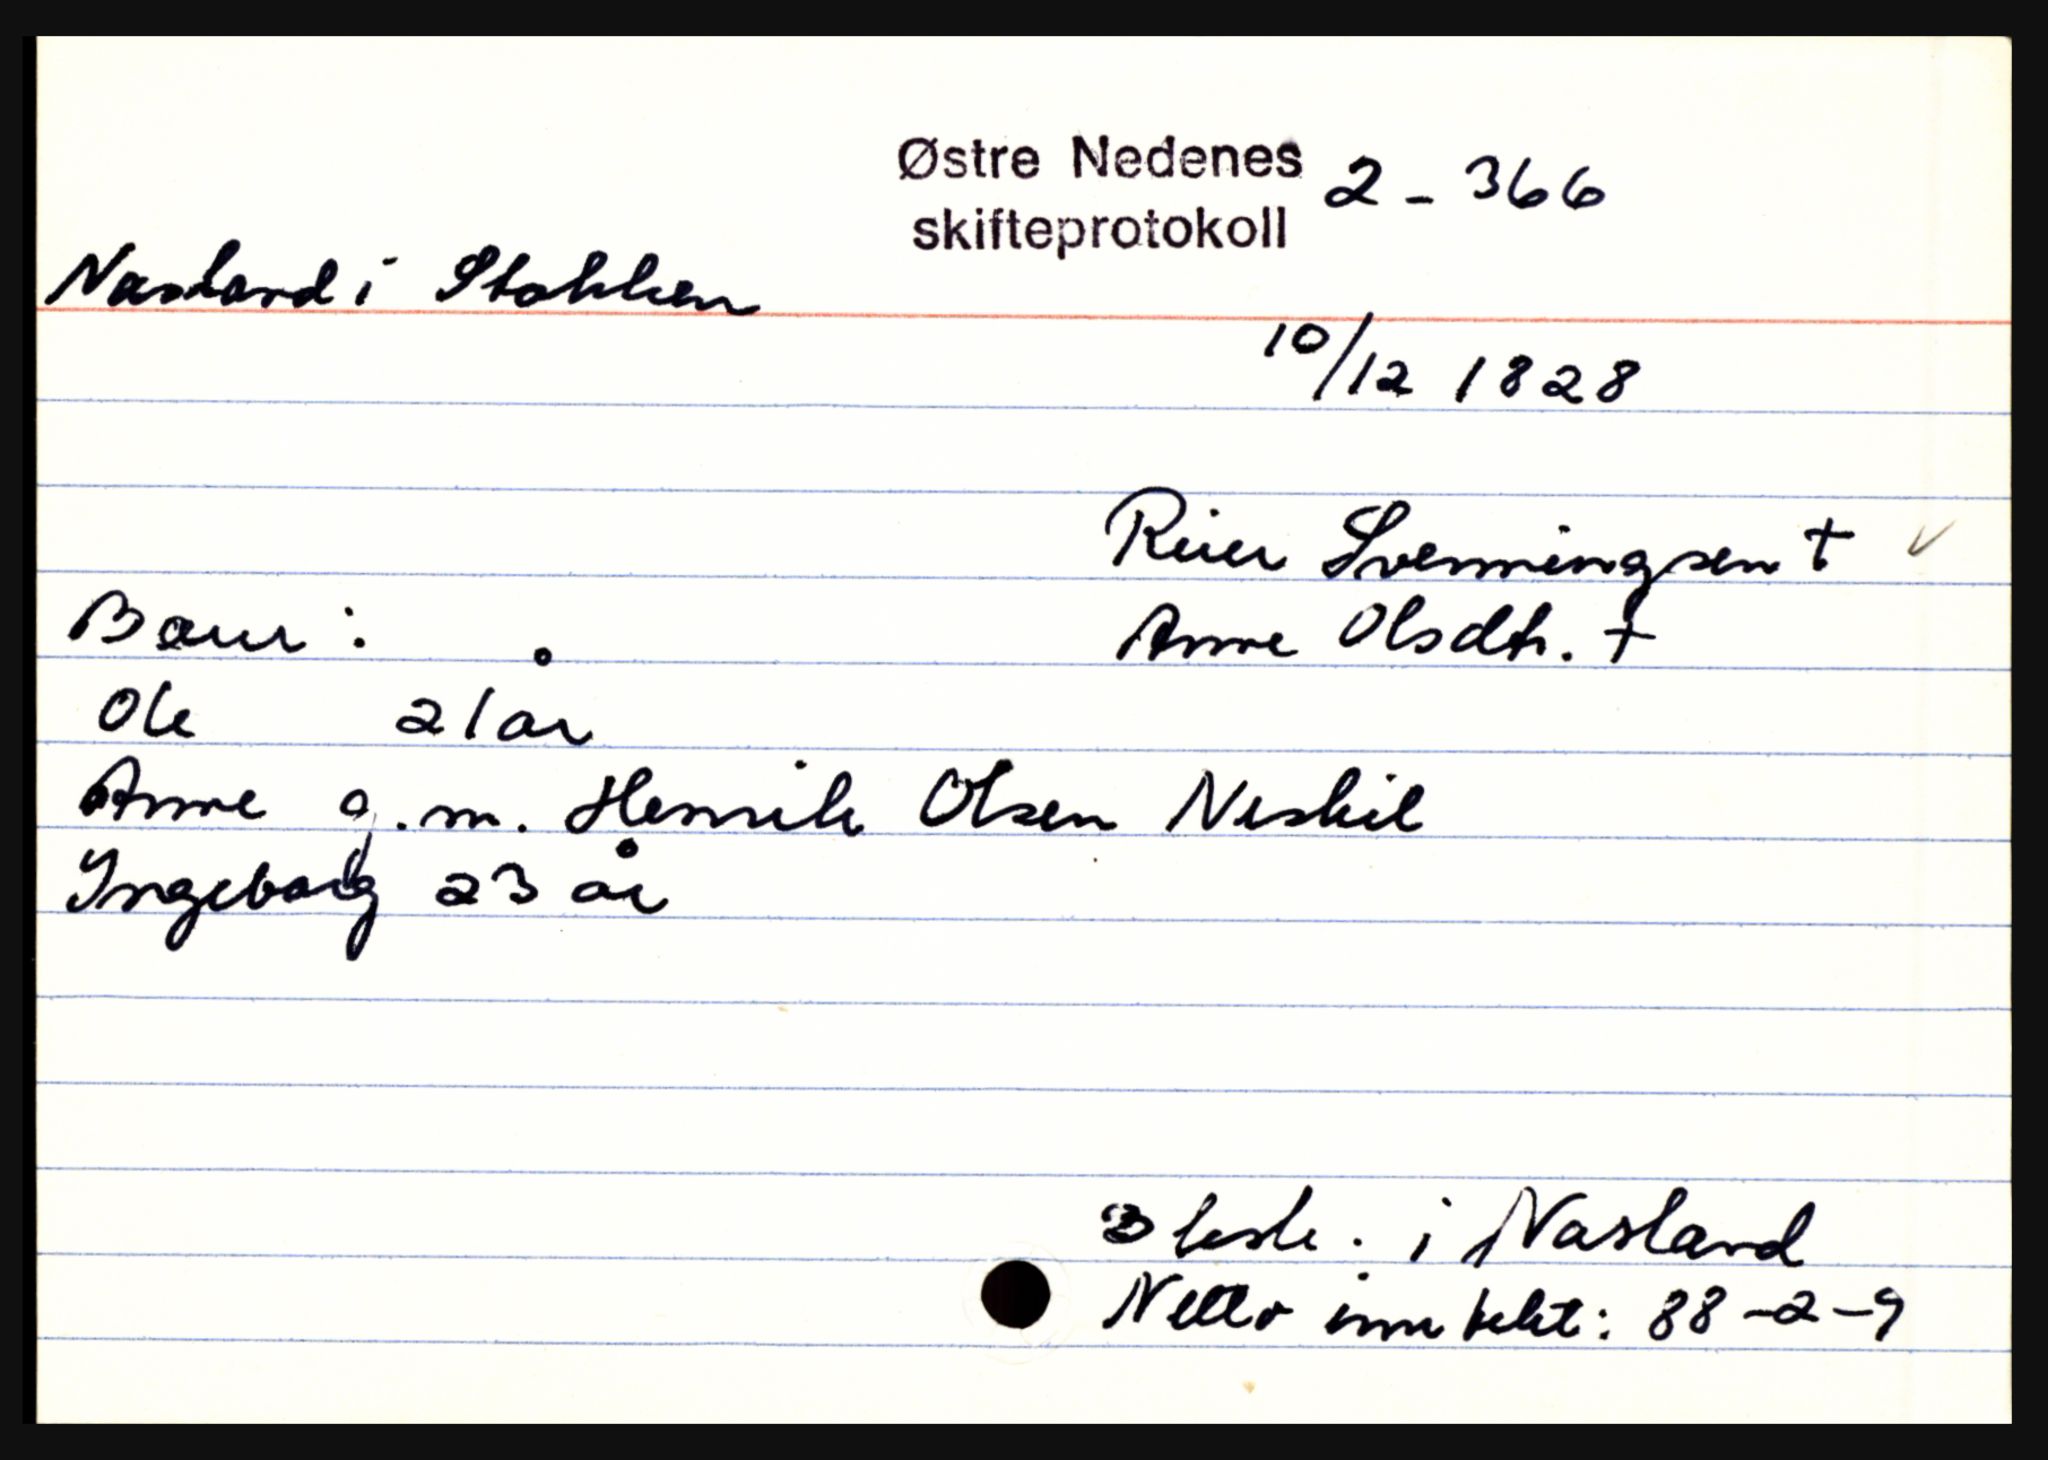 Østre Nedenes 2 - 366
skifteprotokoll
Nasland i Stokken
10/12 1828
Reier Svenningsen +
Barn :
Anne Olsdtr. +
Ole 21 år
Anne g. m. Henrik Olsen Neskil
Ingeborg 23 år
3 besk. i Nasland
Netto inntekt: 88-2-9